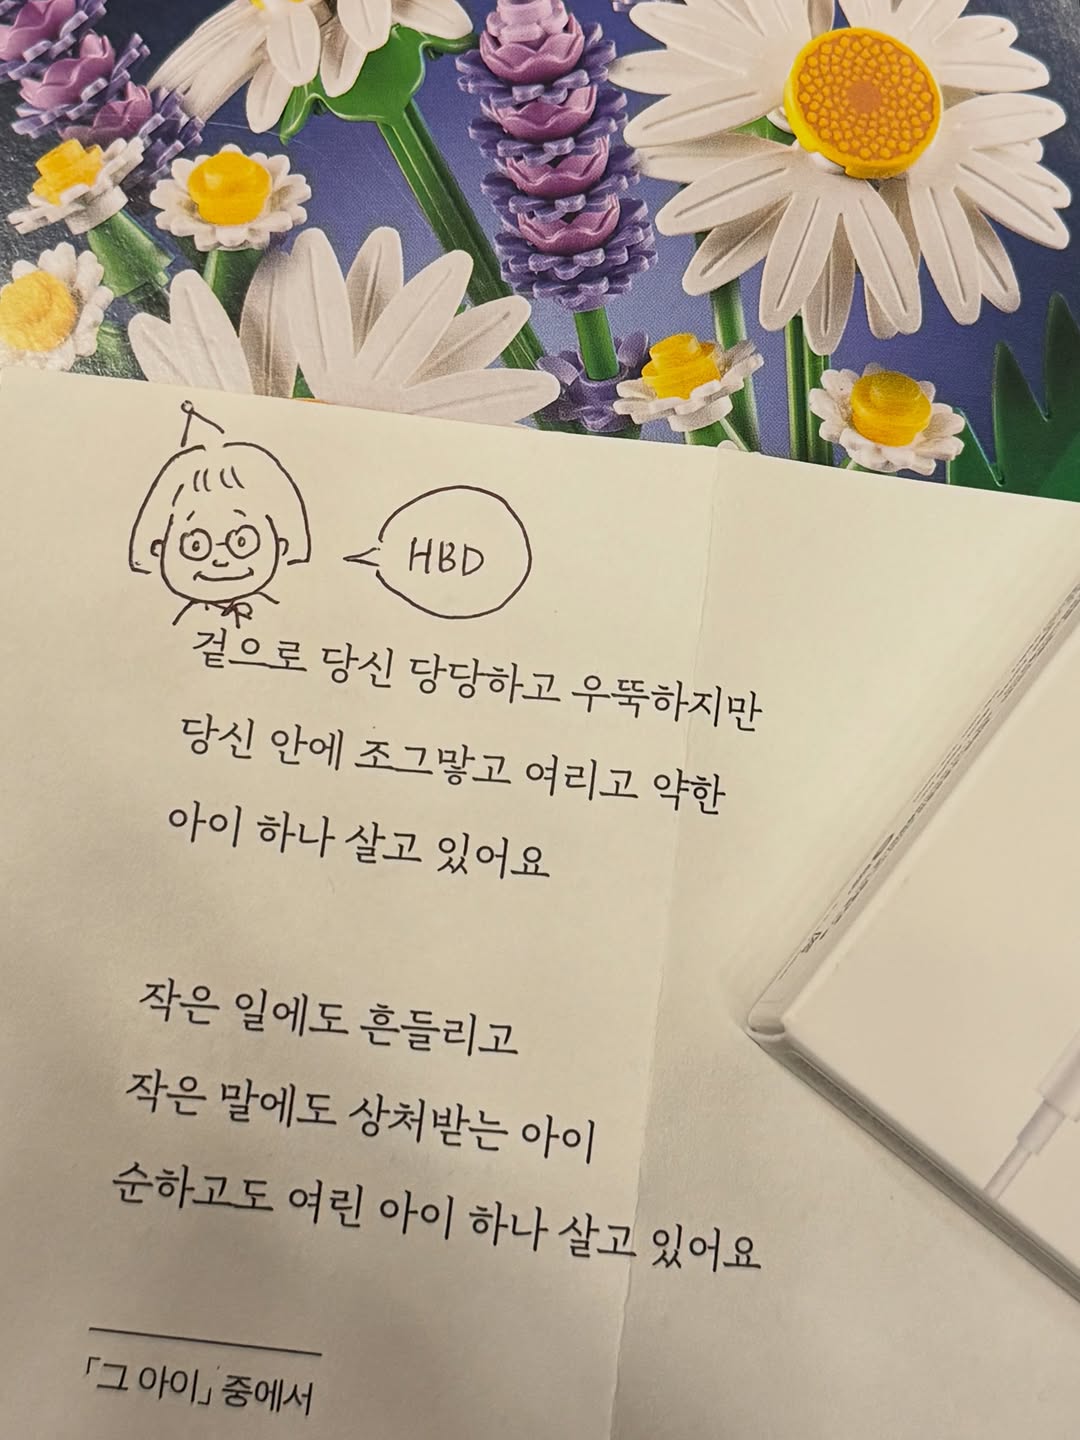 HBD
겉으로 당신 당당하고 우뚝하지만
당신 안에 조그맣고 여리고 약한
아이 하나 살고 있어요
작은 일에도 흔들리고
작은 말에도 상처받는 아이
순하고도 여린 아이 하나 살고 있어요
「그 아이」 중에서